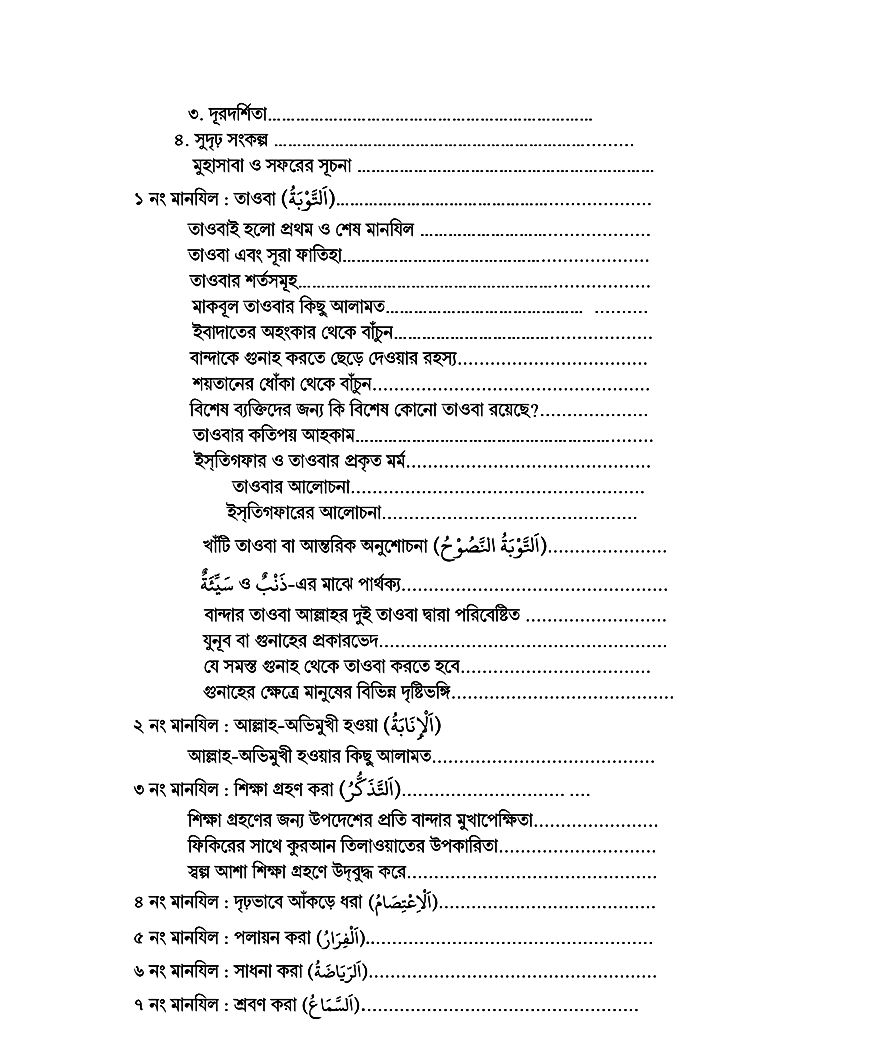 ৩. দূরদর্শিতা.....................................................................
৪. সুদৃঢ় সংকল্প ...........................................................................
মুহাসাবা ও সফরের সূচনা ...............................................................
১ নং মানযিল : তাওবা (اَلتَّوْبَةُ)..................................................................
তাওবাই হলো প্রথম ও শেষ মানযিল ................................................
তাওবা এবং সূরা ফাতিহা................................................................
তাওবার শর্তসমূহ.........................................................................
মাকবূল তাওবার কিছু আলামত.......................................... ..........
ইবাদাতের অহংকার থেকে বাঁচুন.....................................................
বান্দাকে গুনাহ করতে ছেড়ে দেওয়ার রহস্য................................
শয়তানের ধোঁকা থেকে বাঁচুন...............................................
বিশেষ ব্যক্তিদের জন্য কি বিশেষ কোনো তাওবা রয়েছে?..................
তাওবার কতিপয় আহকাম..............................................................
ইস্‌তিগফার ও তাওবার প্রকৃত মর্ম..........................................
তাওবার আলোচনা..................................................
ইস্‌তিগফারের আলোচনা...........................................
খাঁটি তাওবা বা আন্তরিক অনুশোচনা (اَلتَّوْبَةُ النَّصُوْحُ)......................
سَيِّئَةٌ ও ذَنْبٌ-এর মাঝে পার্থক্য..............................................
বান্দার তাওবা আল্লাহর দুই তাওবা দ্বারা পরিবেষ্টিত ........................
যুনূব বা গুনাহের প্রকারভেদ.................................................
যে সমস্ত গুনাহ থেকে তাওবা করতে হবে................................
গুনাহের ক্ষেত্রে মানুষের বিভিন্ন দৃষ্টিভঙ্গি......................................
২ নং মানযিল : আল্লাহ-অভিমুখী হওয়া (اَلْإِنَابَةُ)
আল্লাহ-অভিমুখী হওয়ার কিছু আলামত......................................
৩ নং মানযিল : শিক্ষা গ্রহণ করা (اَلتَّذَكُّرُ)............................ ....
শিক্ষা গ্রহণের জন্য উপদেশের প্রতি বান্দার মুখাপেক্ষিতা.....................
ফিকিরের সাথে কুরআন তিলাওয়াতের উপকারিতা...........................
স্বল্প আশা শিক্ষা গ্রহণে উদ্‌বুদ্ধ করে...........................................
৪ নং মানযিল : দৃঢ়ভাবে আঁকড়ে ধরা (اَلْاِعْتِصَامُ).....................................
৫ নং মানযিল : পলায়ন করা (اَلْفِرَارُ).................................................
৬ নং মানযিল : সাধনা করা (اَلرِّيَاضَةُ).................................................
৭ নং মানযিল : শ্রবণ করা (اَلسَّمَاعُ)...............................................